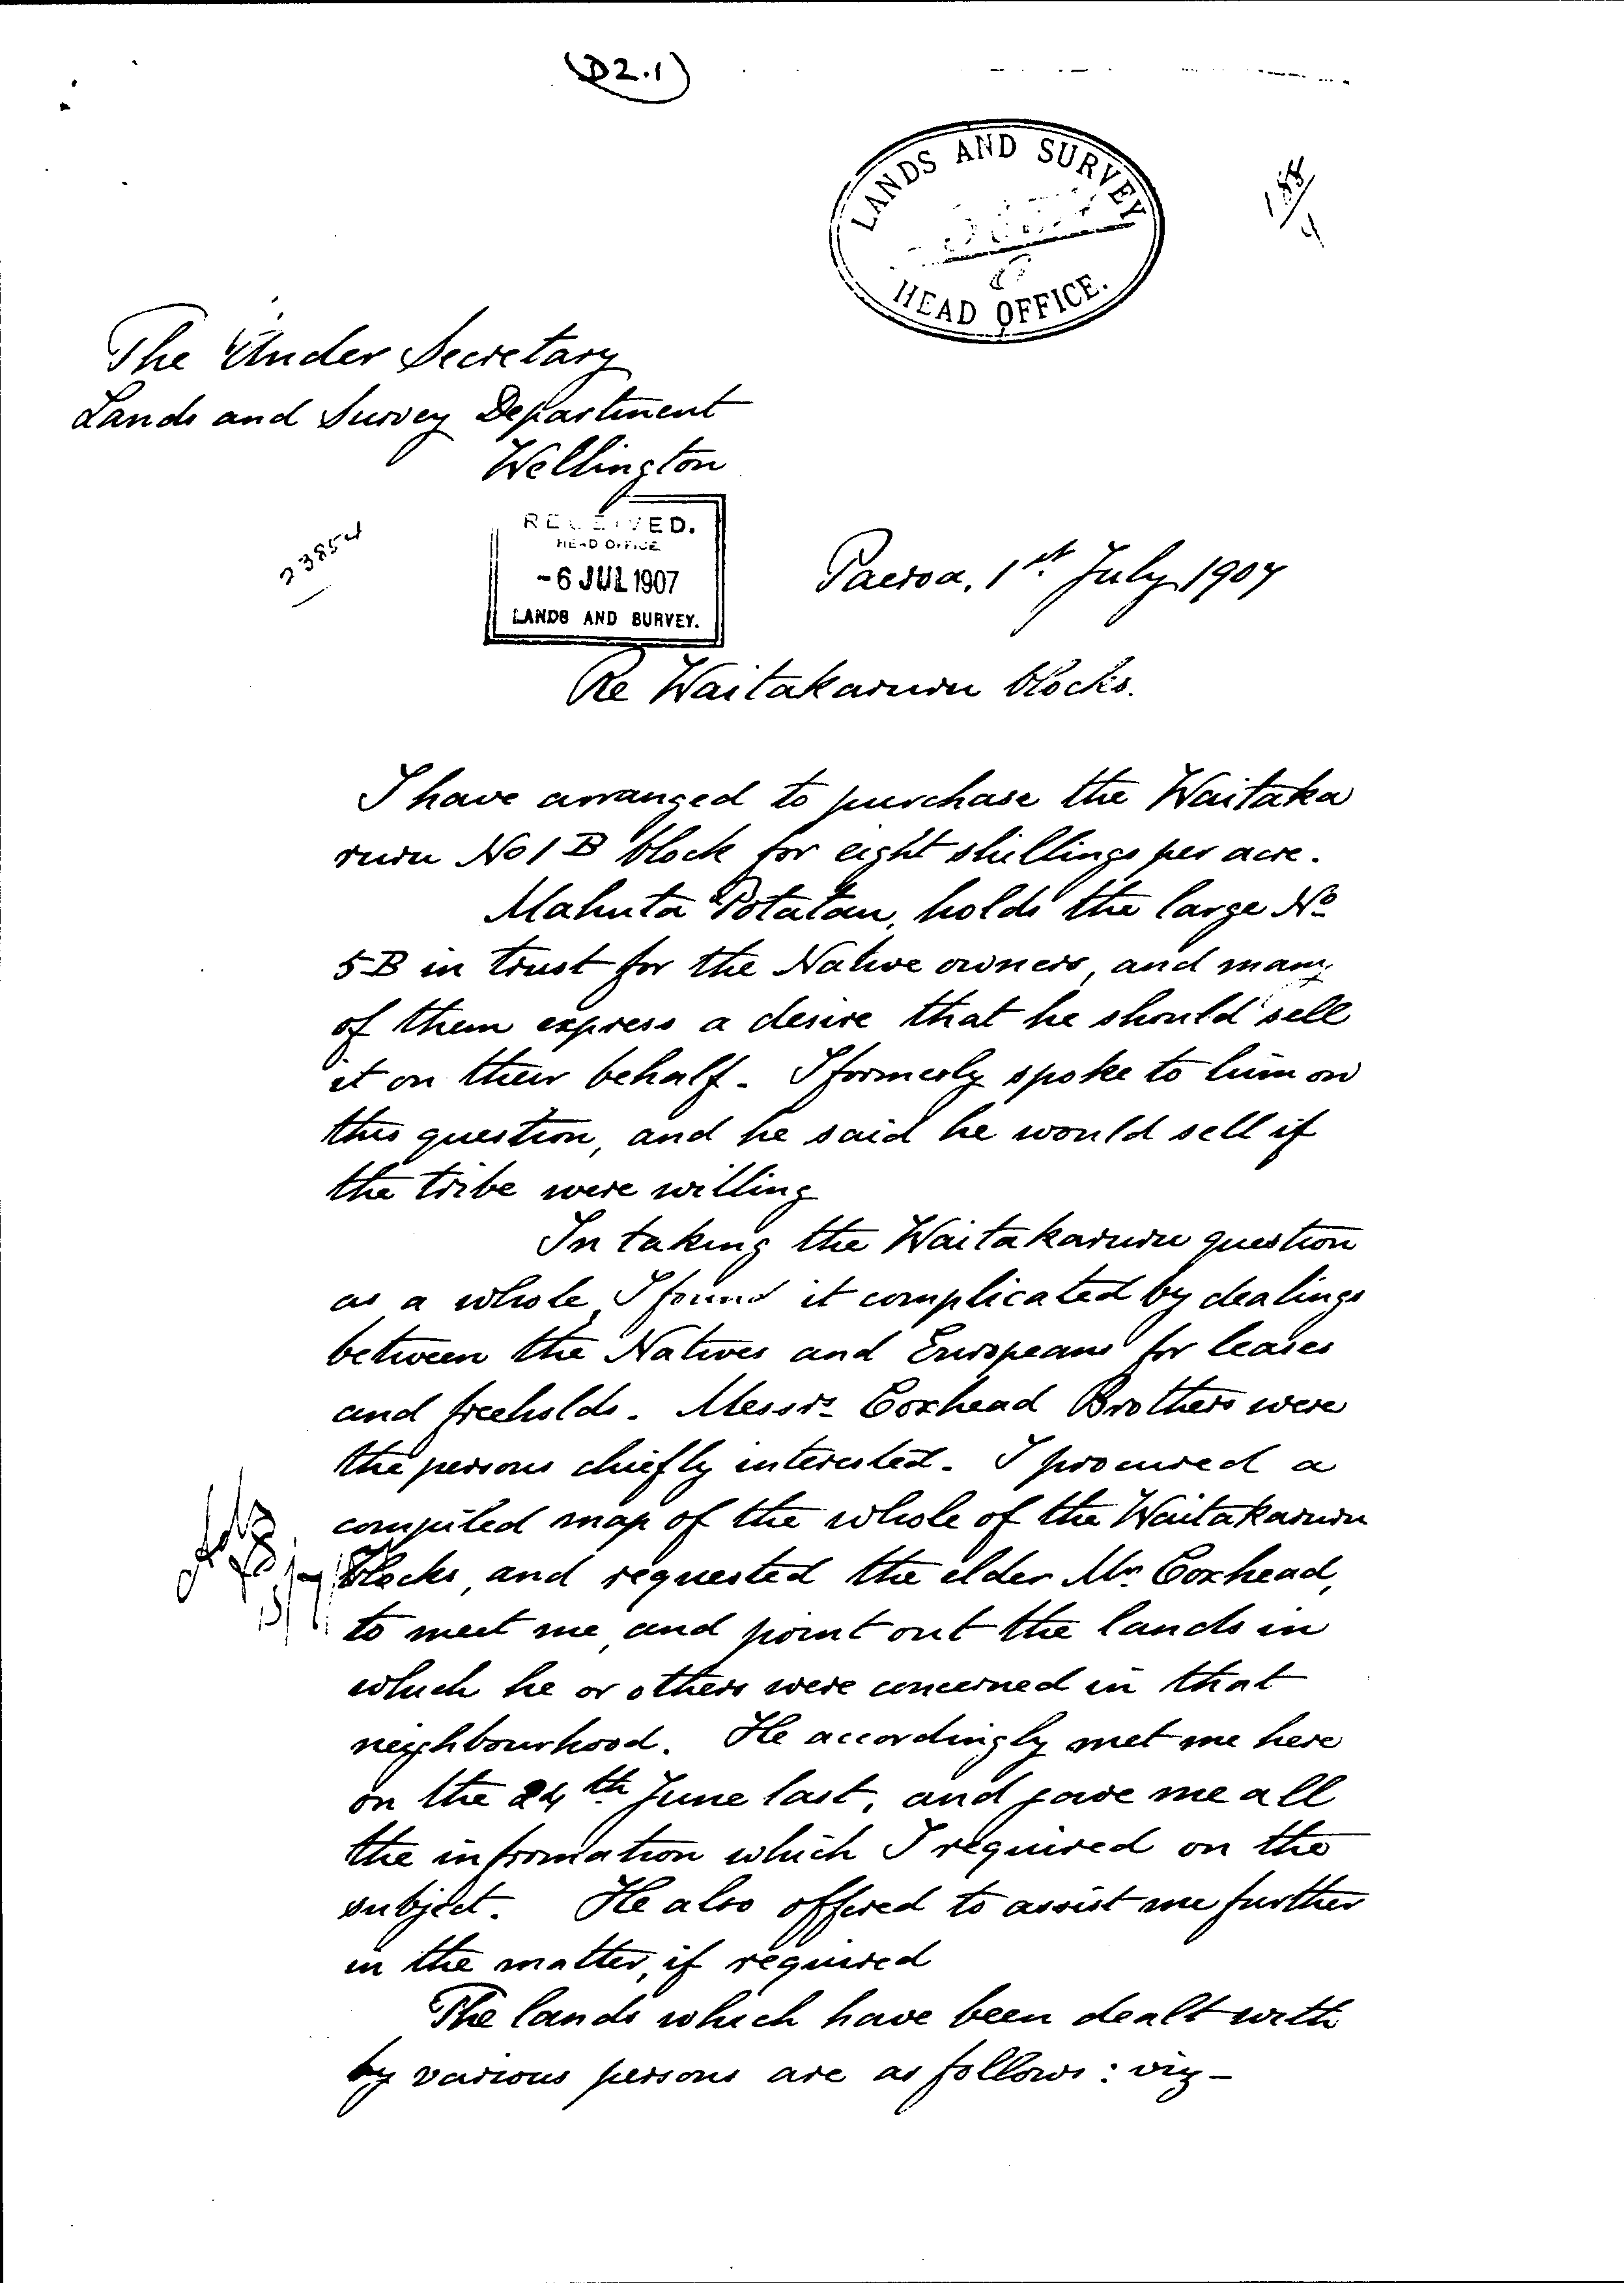 (D2.1)
LANDS AND SURVEY
HEAD OFFICE.
The Under Secretary
Lands and Survey Department
Wellington
23854
RECEIVED.
HEAD OFFICE
-6 JUL 1907
LANDS AND SURVEY.
Paeroa, 1st. July 1907
Re Waitakaruru blocks.
I have arranged to purchase the Waitaka
ruru No 1 B block for eight shillings per acre.
Mahuta Potatau, holds the large No
5B in trust for the Native owners, and many
of them express a desire that he should sell
it on their behalf. I formerly spoke to him on
this question, and he said he would sell if
the tribe were willing
In taking the Waitakaruru question
as a whole, I found it complicated by dealings
between the Natives and Europeans for leases
and freeholds. Messrs Coxhead Brothers were
the persons chiefly interested. I procured a
compiled map of the whole of the Waitakaruru
blocks, and requested the elder Mr. Coxhead,
to meet me, and point out the lands in
which he or others were concerned in that
neighbourhood. He accordingly met me here
on the 24th June last, and gave me all
the information which I required on the
subject. He also offered to assist me further
in the matter, if required
The lands which have been dealt with
by various persons are as follows: viz-